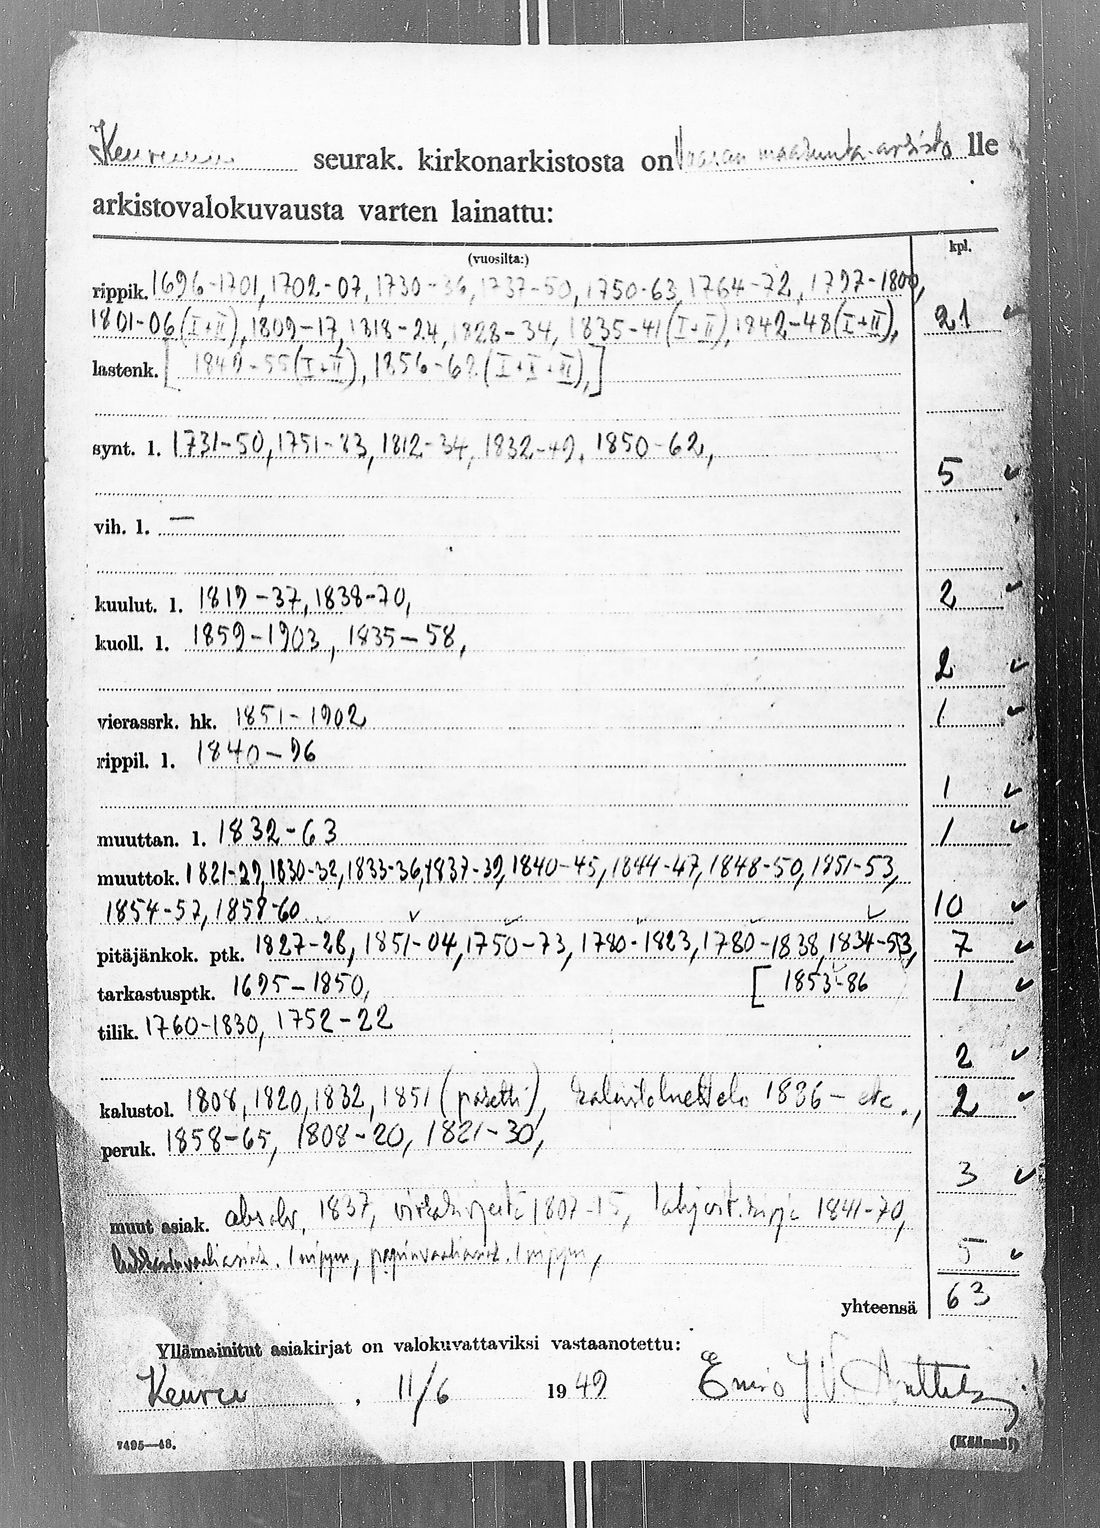 Keuruun seurak. kirkonarkistosta on Vaasan maakunta-arkisto lle
arkistovalokuvausta varten lainattu:
(vuosilta:) kpl.
rippik. 1696-1701, 1702-07, 1730-36, 1737-50, 1750-63, 1764-72, 1797-1800,
1801-06 (I+II), 1809-17, 1818-24, 1828-34, 1835-41 (I+II), 1842-48 (I+II), 21 ✓
lastenk. [1849-55 (I+II), 1856-62 (I+I+II),]
synt. l. 1731-50, 1751-83, 1812-34, 1832-49, 1850-62,
5 ✓
vih. l. —
kuulut. l. 1819-37, 1838-70, 2 ✓
kuoll. l. 1859-1903, 1835-58,
2 ✓
vierassrk. hk. 1851-1902 1 ✓
rippil. l. 1840-96
1 ✓
muuttan. l. 1832-63 1 ✓
muuttok. 1821-29, 1830-32, 1833-36, 1837-39, 1840-45, 1844-47, 1848-50, 1851-53,
1854-57, 1858-60 10 ✓
pitäjänkok. ptk. 1827-28, 1851-04, 1750-73, 1780-1823, 1780-1838, 1834-53, 7 ✓
tarkastusptk. 1695-1850, [1853-86 1 ✓
tilik. 1760-1830, 1752-22
2 ✓
kalustol. 1808, 1820, 1832, 1851 (pasetti), kalustoluettelo 1836- etc., 2 ✓
peruk. 1858-65, 1808-20, 1821-30,
3 ✓
muut asiak. absolv. 1837, virkakirjeitä 1807-15, lahjoit. kirja 1841-70,
1 nippu, 1 nippu, 5 ✓
yhteensä 63
Yllämainitut asiakirjat on valokuvattaviksi vastaanotettu:
Keuruu . 11/6 1949
7495—48. (Käännä!)